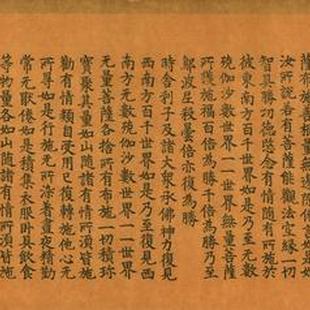 薩布施善根量無邊際佛言如是如
汝所說若有菩薩能觀法空緣一切
智具勝功德愍念有情隨有所施於
彼東南方百千世界如是乃至無數
殑伽沙數世界一一世界無量菩薩
所獲施福百倍為勝千倍為勝乃至
鄔波尼殺曇倍亦復為勝
時舍利子及諸大衆承佛神力復見
西南方百千世界如是乃至復見西
南方無數殑伽沙數世界一一世界
無量菩薩各捨所有布施一切積珎
寶聚其量如山隨諸有情所須皆施
勸有情類自受用已復轉施他心无
所尋如是行施无所著晝夜精勤
常无猒倦如是積集衣服卧具飲食
等物量各如山隨諸有情所須皆施